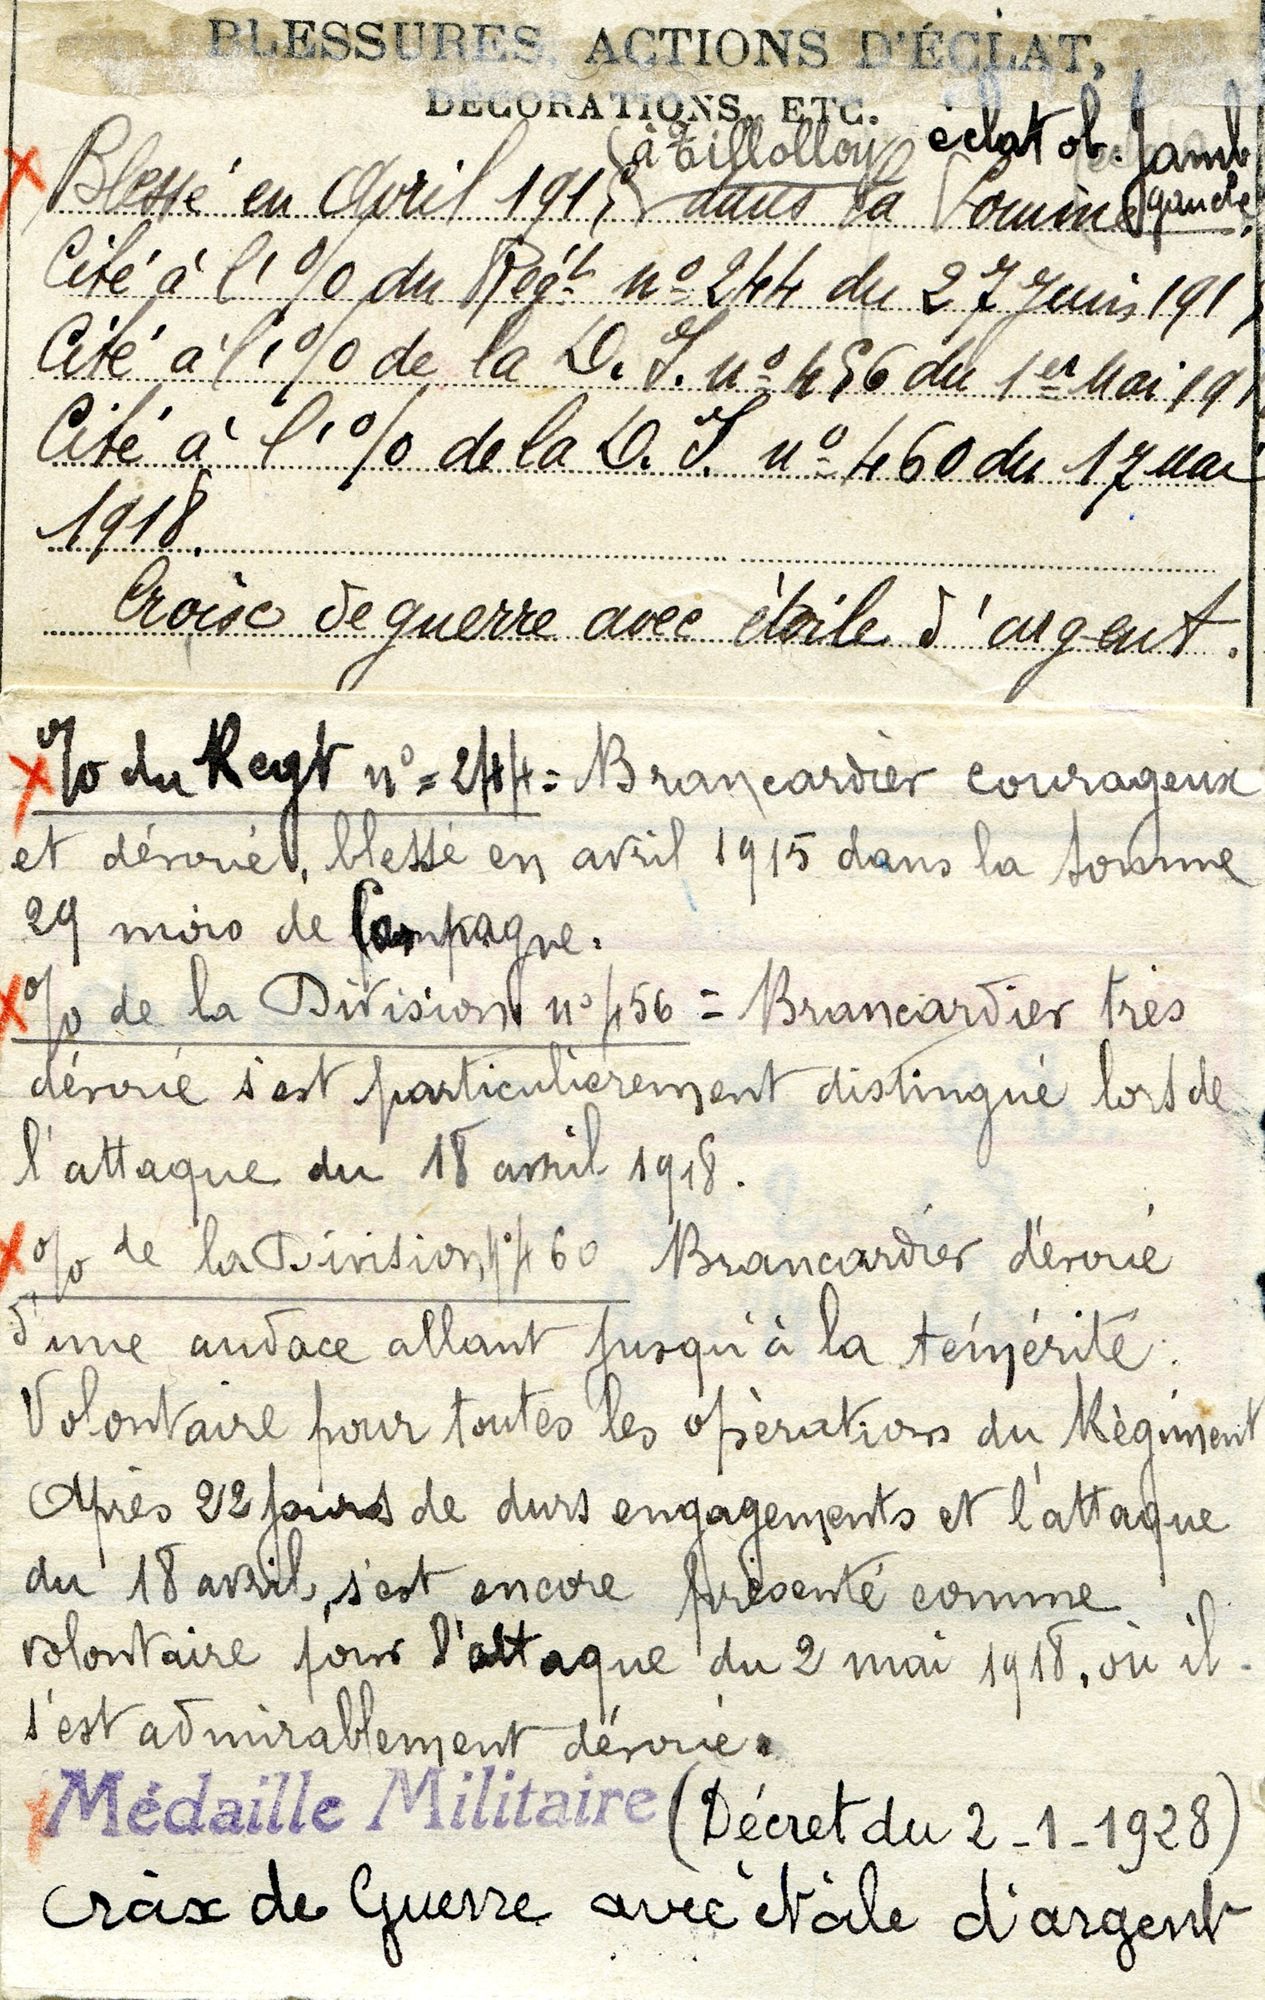 BLESSURES, ACTIONS D'ÉCLAT,
DÉCORATIONS, ETC.
à Tillolloy éclat ob. Jamb
gauche
Blessé en Avril 1915 dans la Somme
Cité à l'% du Régt nº 244 du 27 Juin 191
Cité à l'% de la D. I. nº 456 du 1er Mai 191
Cité à l'% de la D. I. nº 460 du 17 mai
1918.
Croix de guerre avec étoile d'argent.
% du Regt nº = 244 = Brancardier courageux
et dévoué, blessé en avril 1915 dans la Somme
29 mois de Campagne.
% de la Division nº 456 = Brancardier très
dévoué s'est particulièrement distingué lors de
l'attaque du 18 avril 1918.
% de la Division nº 460 Brancardier dévoué
d'une audace allant jusqu'à la témérité.
Volontaire pour toutes les opèrations du Règiment
Après 22 jours de durs engagements et l'attaque
du 18 avril, s'est encore présenté comme
volontaire pour l'attaque du 2 mai 1918, où il
s'est admirablement dévoué.
Médaille Militaire (Décret du 2-1-1928)
Croix de Guerre avec étoile d'argent